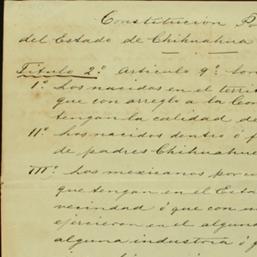 Constitucion P
del Estado de Chihuahua
Titulo 2º Articulo 9º Son
Iº Los nacidos en el terri
que con arreglo a la Con
tengan la calidad de
IIº Los nacidos dentro ó f
de padres Chihuahue
IIIº Los mexicanos por
que tengan en el Esta
vecindad ó que con
ejercieren en el alguna
alguna industria ó